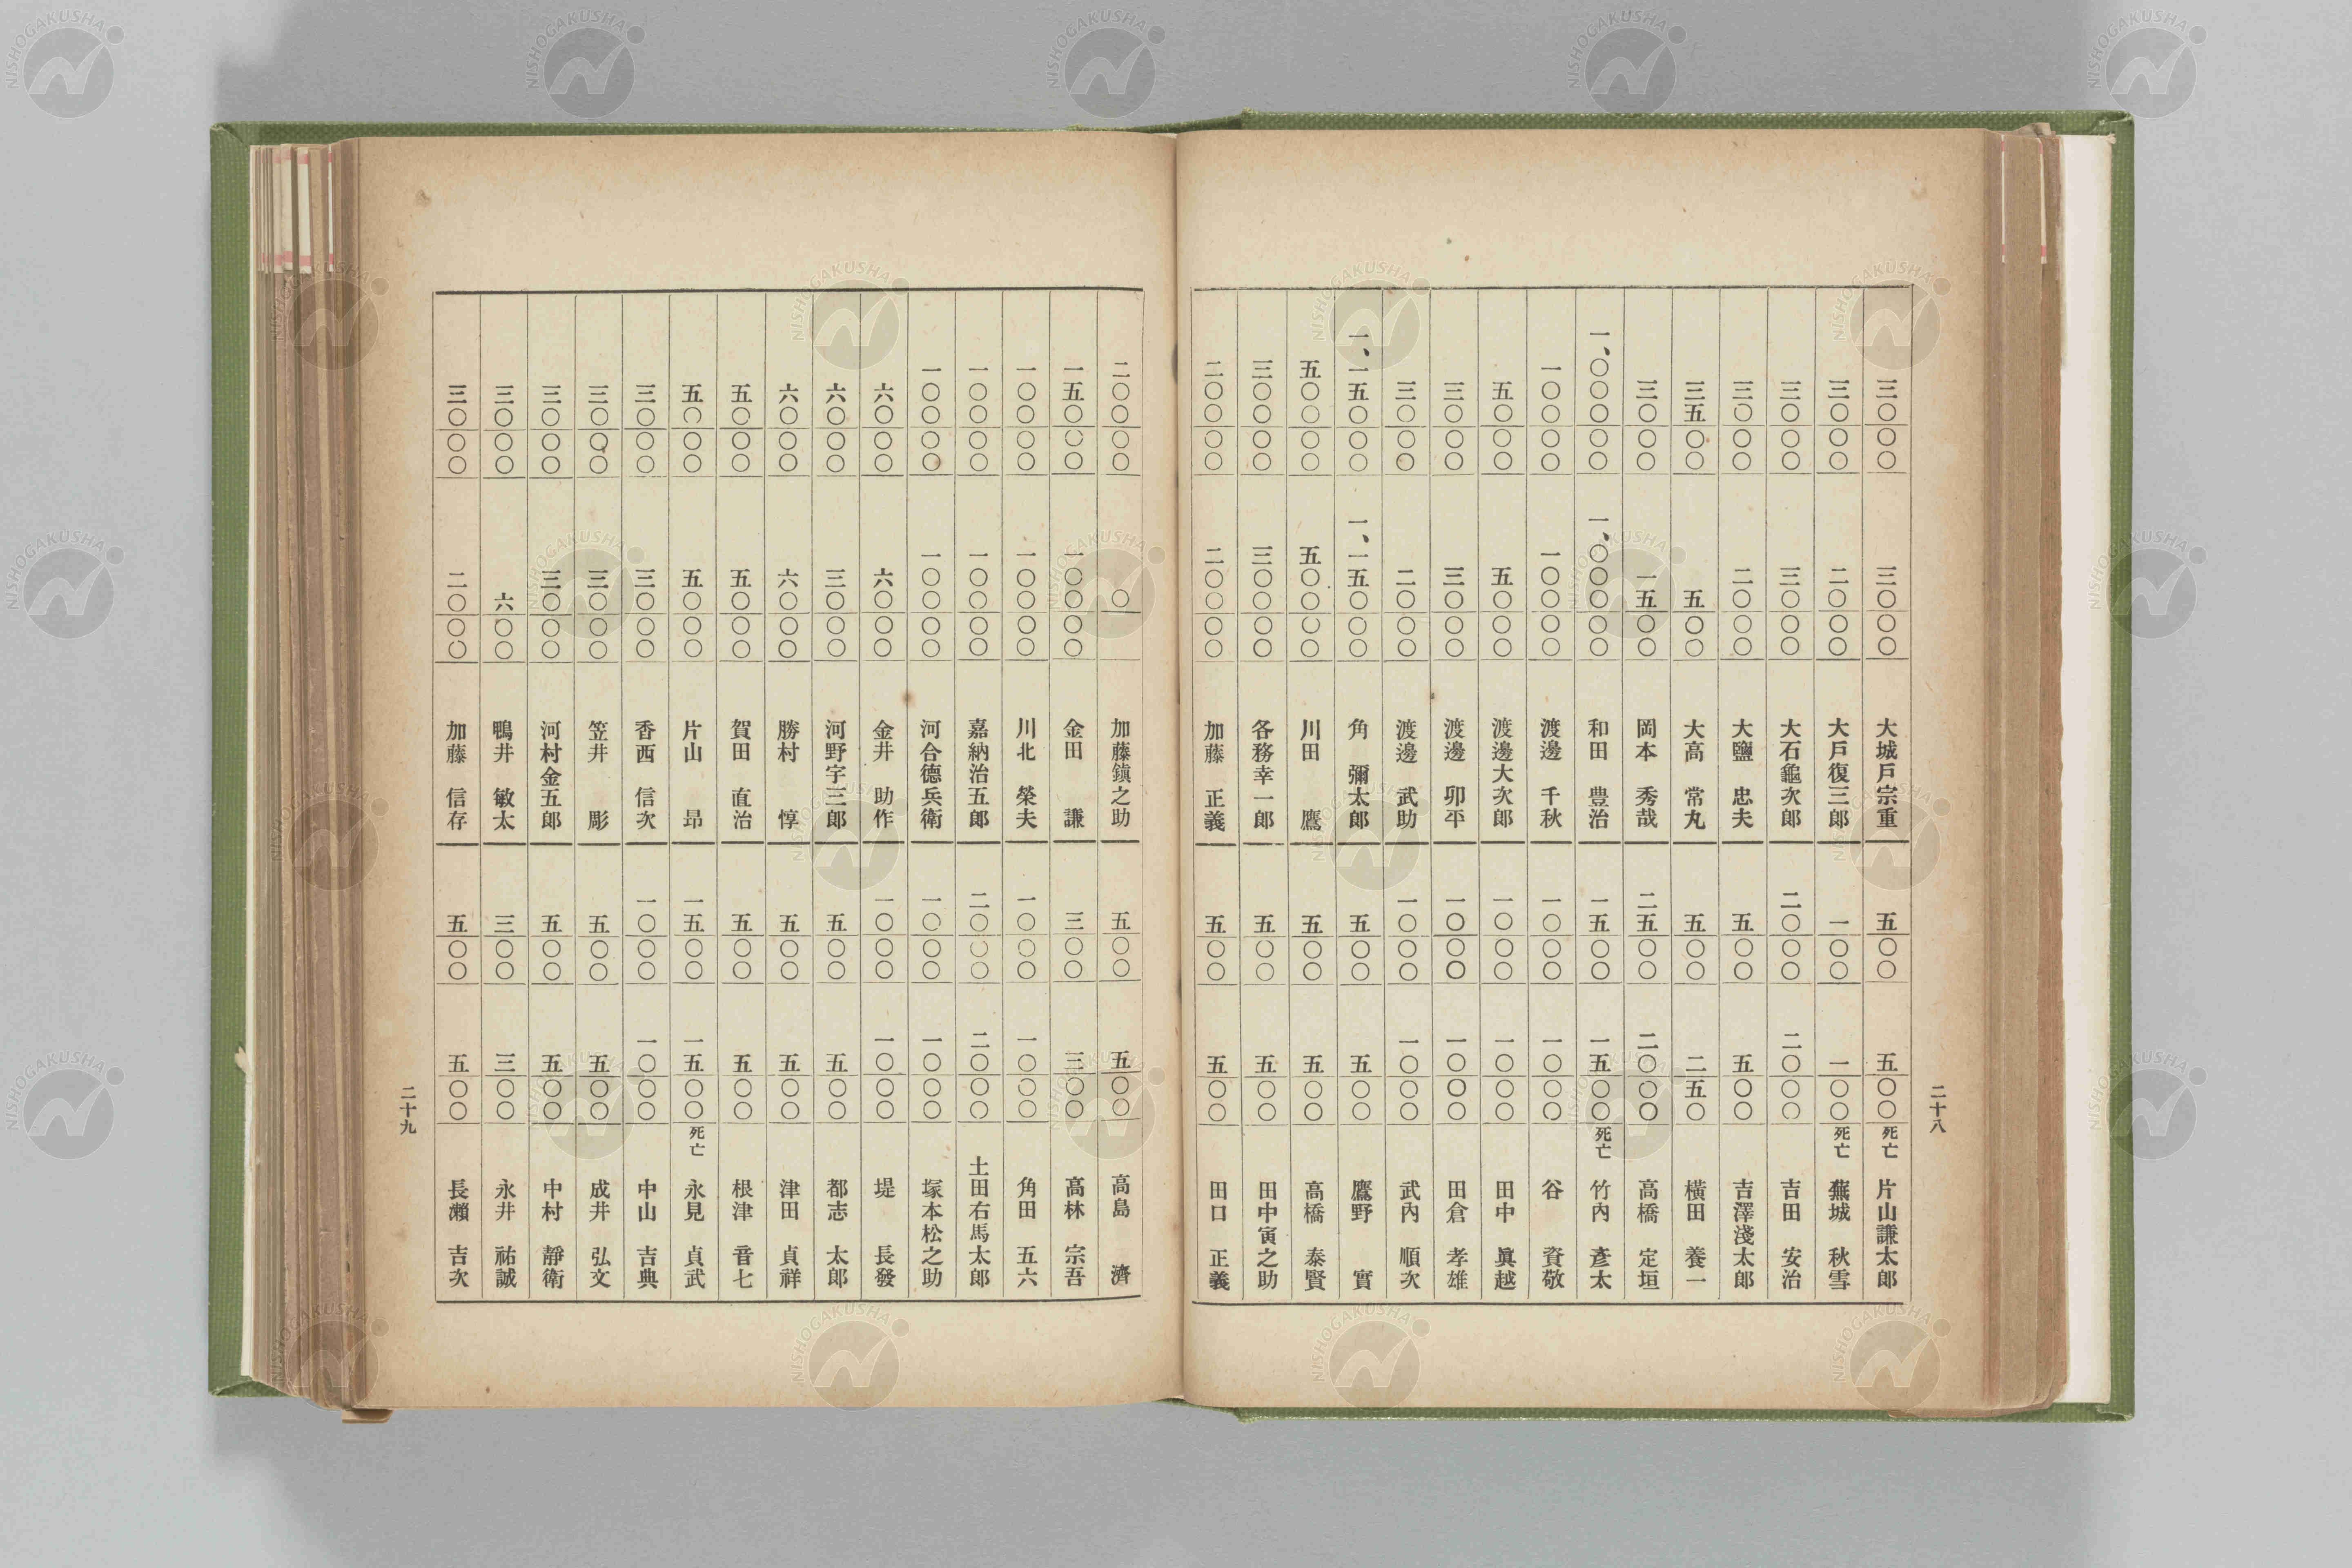 三〇〇〇 三〇〇〇 大城戸宗重
三〇〇〇 二〇〇〇 大戸復三郎
三〇〇〇 三〇〇〇 大石龜次郎
三〇〇〇 二〇〇〇 大鹽 忠夫
三五〇〇 五〇〇 大高 常丸
三〇〇〇 一五〇〇 岡本 秀哉
一、〇〇〇〇〇 一、〇〇〇〇〇 和田 豊治
一〇〇〇〇 一〇〇〇〇 渡邊 千秋
五〇〇〇 五〇〇〇 渡邊大次郎
三〇〇〇 三〇〇〇 渡邊 卯平
三〇〇〇 二〇〇〇 渡邊 武助
一、一五〇〇〇 一、一五〇〇〇 角 彌太郎
五〇〇〇〇 五〇〇〇〇 川田 鷹
三〇〇〇〇 三〇〇〇〇 各務幸一郎
二〇〇〇〇 二〇〇〇〇 加藤 正義
五〇〇 五〇〇 死亡 片山謙太郎
一〇〇 一〇〇 死亡 蕪城 秋雪
二〇〇〇 二〇〇〇 吉田 安治
五〇〇 五〇〇 吉澤淺太郎
五〇〇 二五〇 横田 養一
二五〇〇 二〇〇〇 高橋 定垣
一五〇〇 一五〇〇 死亡 竹内 彥太
一〇〇〇 一〇〇〇 谷 資敬
一〇〇〇 一〇〇〇 田中 眞越
一〇〇〇 一〇〇〇 田倉 孝雄
一〇〇〇 一〇〇〇 武内 順次
五〇〇 五〇〇 鷹野 實
五〇〇 五〇〇 高橋 泰賢
五〇〇 五〇〇 田中寅之助
五〇〇 五〇〇 田口 正義
二十八
二〇〇〇〇 〇 加藤鎭之助
一五〇〇〇 一〇〇〇〇 金田 謙
一〇〇〇〇 一〇〇〇〇 川北 榮夫
一〇〇〇〇 一〇〇〇〇 嘉納治五郎
一〇〇〇〇 一〇〇〇〇 河合德兵衛
六〇〇〇 六〇〇〇 金井 助作
六〇〇〇 三〇〇〇 河野宇三郎
六〇〇〇 六〇〇〇 勝村 惇
五〇〇〇 五〇〇〇 賀田 直治
五〇〇〇 五〇〇〇 片山 昻
三〇〇〇 三〇〇〇 香西 信次
三〇〇〇 三〇〇〇 笠井 彫
三〇〇〇 三〇〇〇 河村金五郎
三〇〇〇 六〇〇 鴨井 敏太
三〇〇〇 二〇〇〇 加藤 信存
五〇〇 五〇〇 高島 濟
三〇〇 三〇〇 高林 宗吾
一〇〇〇 一〇〇〇 角田 五六
二〇〇〇 二〇〇〇 土田右馬太郎
一〇〇〇 一〇〇〇 塚本松之助
一〇〇〇 一〇〇〇 堤 長發
五〇〇 五〇〇 都志 太郎
五〇〇 五〇〇 津田 貞祥
五〇〇 五〇〇 根津 音七
一五〇〇 一五〇〇 死亡 永見 貞武
一〇〇〇 一〇〇〇 中山 吉典
五〇〇 五〇〇 成井 弘文
五〇〇 五〇〇 中村 靜衛
三〇〇 三〇〇 永井 祐誠
五〇〇 五〇〇 長瀨 吉次
二十九